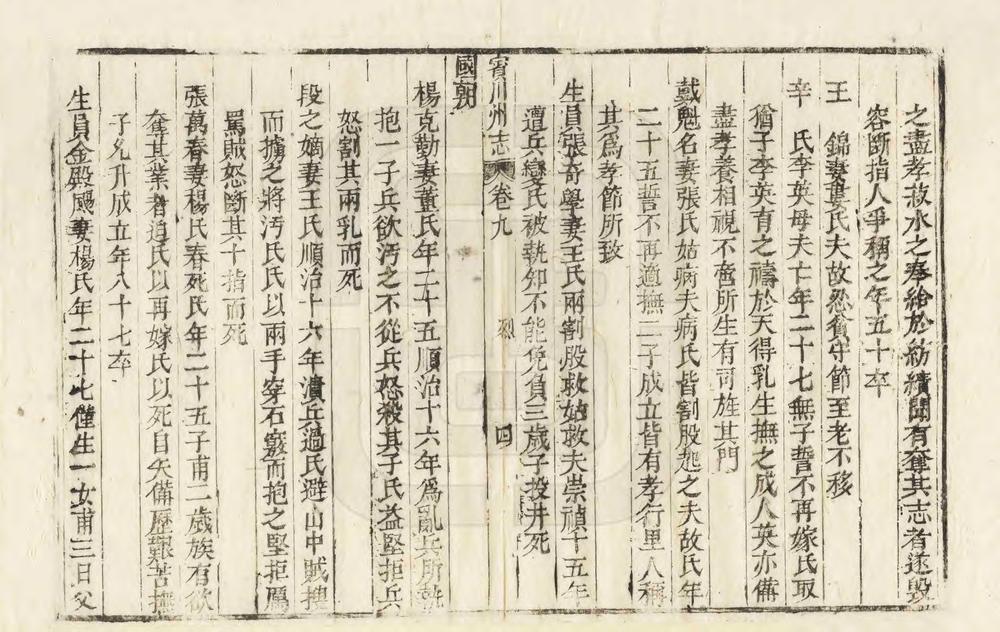 之盡孝菽水之奉給於紡績聞有奪其志者遂毀
容斷指人爭稱之年五十卒
王　錦妻婁氏夫故忍貧守節至老不移
辛　氏李英母夫亡年二十七無子誓不再嫁氏取
猶子李英育之禱於天得乳生撫之成人英亦備
盡孝養相視不啻所生有司旌其門
戴魁名妻張氏姑病夫病氏皆割股起之夫故氏年
二十五誓不再適撫二子成立皆有孝行里人稱
其爲孝節所致
生員張奇學妻王氏兩割股救姑救夫崇禎十五年
遭兵變氏被執知不能免負三歲子投井死
賓川州志　卷九　烈　四
國朝
楊克勤妻董氏年二十五順治十六年爲亂兵所執
抱一子兵欲污之不從兵怒殺其子氏益堅拒兵
怒割其兩乳而死
段之嫡妻王氏順治十六年潰兵過氏避山中賊搜
而擄之將污氏氏以兩手穿石竅而抱之堅拒厲
罵賊怒斷其十指而死
張萬春妻楊氏春死氏年二十五子甫二歲族有欲
奪其業者迫氏以再嫁氏以死自矢備歷艱苦撫
子允升成立年八十七卒
生員金殿颺妻楊氏年二十七僅生一女甫三日父